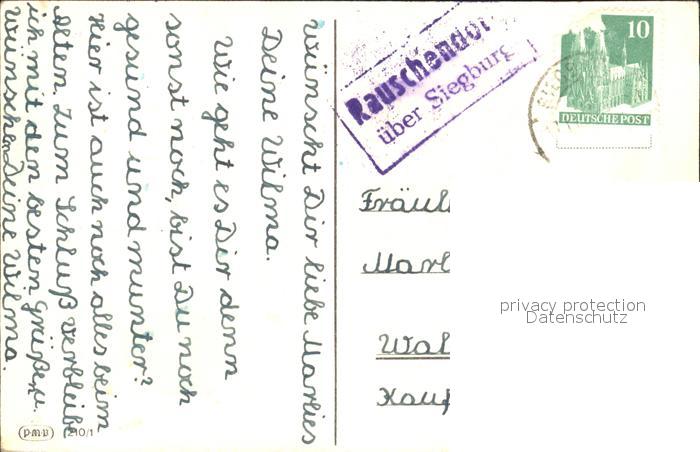 wünscht Dir liebe Marlies
Deine Wilma.
Wie geht es Dir denn
sonst noch, bist Du noch
gesund und munter?
Hier ist auch noch alles beim
Alten. Zum Schluß verbleibe
ich mit den besten Grüßen u.
Wünschen Deine Wilma.
P·M·B 210/1
Rauschendorf
über Siegburg
10
DEUTSCHE POST
Fräul
Marl
Wal
Kauf
privacy protection
Datenschutz